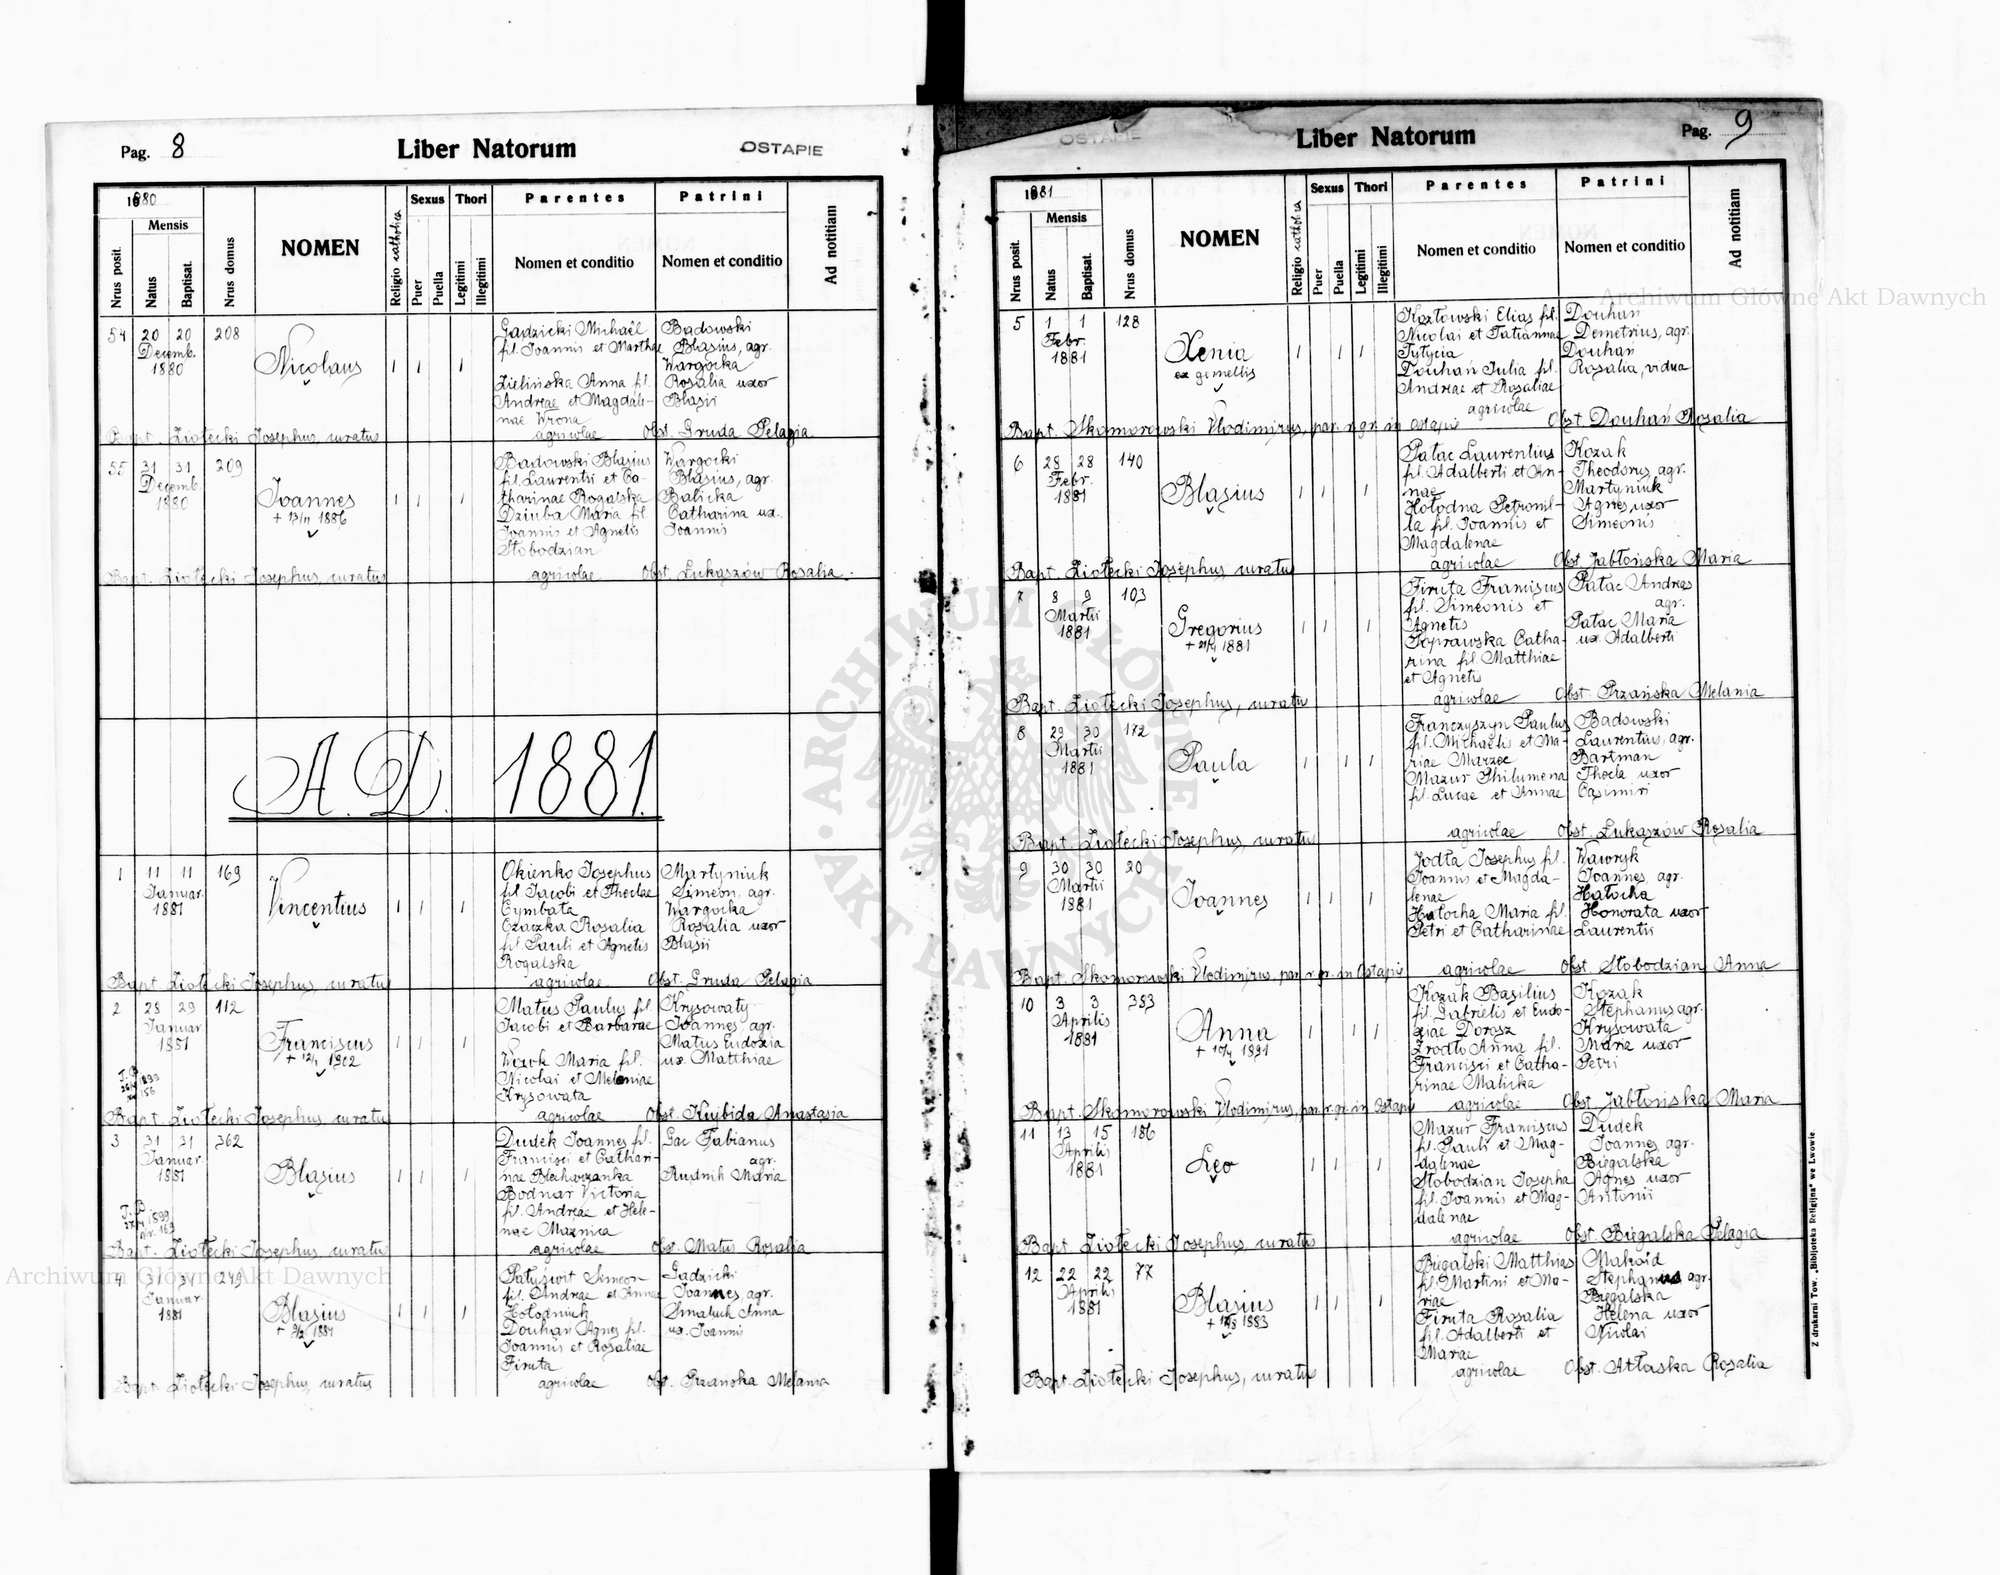 Pag. 8
Liber Natorum
OSTAPIE
1880
Mensis
Nrus posit.
Natus
Baptisat.
Nrus domus
NOMEN
Religio catholica
Sexus
Puer
Puella
Thori
Legitimi
Illegitimi
Parentes
Nomen et conditio
Patrini
Nomen et conditio
Ad notitiam
54 20 20 208
Decemb.
1880
Nicolaus
1 1 1
Gadzicki Michaël
fil. Joannis et Marthae
Zielińska Anna fil.
Andreae et Magdale-
nae Wrona
agricolae
Badowski
Blasius, agr.
Wargocka
Rosalia uxor
Blasii
Bapt. Ziołecki Josephus, curatus
Obst. Gruda Pelagia
55 31 31 209
Decemb.
1880
Joannes
+ 13/11 1886
1 1 1
Badowski Blasius
fil. Laurentii et Ca-
tharinae Rogalska
Dziuba Maria fil.
Joannis et Agnetis
Słobodzian
agricolae
Wargocki
Blasius, agr.
Balicka
Catharina ux.
Joannis
Bapt. Ziołecki Josephus, curatus
Obst. Łukaszów Rosalia.
A. D. 1881.
1 11 11 169
Januar.
1881
Vincentius
1 1 1
Okienko Josephus
fil. Jacobi et Theclae
Cymbała
Czaczka Rosalia
fil. Pauli et Agnetis
Rogalska
agricolae
Martyniuk
Simeon, agr.
Wargocka
Rosalia uxor
Blasii
Bapt. Ziołecki Josephus, curatus
Obst. Gruda Pelagia
2 28 29 112
Januar
1881
Franciscus
+ 12/1 1902
1 1 1
Matus Paulus fil.
Jacobi et Barbarae
Maria fil.
Nicolai et Melaniae
Krysowata
agricolae
Krysowaty
Joannes, agr.
Matus Eudoxia
ux. Matthiae
Bapt. Ziołecki Josephus, curatus
Obst. Kujbida Anastasia
3 31 31 362
Januar
1881
Blasius
1 1 1
Dudek Joannes fil.
Francisci et Cathari-
nae Blecharzanka
Bodnar Victoria
fil. Andreae et Hele-
nae Maznica
agricolae
Gac Fabianus
agr.
Rudnik Maria
Bapt. Ziołecki Josephus, curatus
Obst. Matus Rosalia
4 31 31 249
Januar
1881
Blasius
+ 3/2 1881
1 1 1
Patyświt Simeon
fil. Andreae et Annae
Hołodniuk
Douhań Agnes fil.
Joannis et Rosaliae
Firuta
agricolae
Gadzicki
Joannes, agr.
Smaluch Anna
ux. Joannis
Bapt. Ziołecki Josephus, curatus
Obst. Przańska Melania
Pag. 9
Liber Natorum
OSTAPIE
1881
Mensis
Nrus posit.
Natus
Baptisat.
Nrus domus
NOMEN
Religio catholica
Sexus
Puer
Puella
Thori
Legitimi
Illegitimi
Parentes
Nomen et conditio
Patrini
Nomen et conditio
Ad notitiam
5 1 1 128
Febr.
1881
Xenia
ex gemellis
1 1 1
Kozłowski Elias fil.
Nicolai et Tatiannae
Tytycia
Douhań Julia fil.
Andreae et Rosaliae
agricolae
Douhań
Demetrius, agr.
Douhań
Rosalia, vidua
Bapt. Skomorowski Vlodimirus, par. r. gr. in Ostapie
Obst. Douhań Rosalia
6 28 28 140
Febr.
1881
Blasius
1 1 1
Pałac Laurentius
fil. Adalberti et An-
nae
Hołodna Petronil-
la fil. Joannis et
Magdalenae
agricolae
Kozak
Theodorus, agr.
Martyniuk
Agnes uxor
Simeonis
Bapt. Ziołecki Josephus, curatus
Obst. Jabłońska Maria
7 8 9 103
Martii
1881
Gregorius
1 1 1
Firuta Franciscus
fil. Simeonis et
Agnetis
Poprawska Catha-
rina fil. Matthiae
et Agnetis
agricolae
Pałac Andreas
agr.
Pałac Maria
ux. Adalberti
Bapt. Ziołecki Josephus, curatus
Obst. Przańska Melania
8 29 30 172
Martii
1881
Paula
1 1 1
Franczyszyn Paulus
fil. Michaelis et Ma-
riae Marzec
Mazur Philumena
fil. Lucae et Annae
agricolae
Badowski
Laurentius, agr.
Bartman
Thecla uxor
Casimiri
Bapt. Ziołecki Josephus, curatus
Obst. Łukaszów Rosalia
9 30 30 20
Martii
1881
Joannes
1 1 1
Jodła Josephus fil.
Joannis et Magda-
lenae
Hałocha Maria fil.
Petri et Catharinae
agricolae
Wawryk
Joannes, agr.
Hałocha
Honorata uxor
Laurentii
Bapt. Skomorowski Vlodimirus, par. r. gr. in Ostapie
Obst. Słobodzian Anna
10 3 3 383
Aprilis
1881
Anna
+ 10/4 1891
1 1 1
Kozak Basilius
fil. Gabrielis et Eudo-
xiae Dorosz
Źródło Anna fil.
Francisci et Catha-
rinae Malicka
agricolae
Kozak
Stephanus agr.
Krysowata
Maria uxor
Petri
Bapt. Skomorowski Vlodimirus, par. r. gr. in Ostapie
Obst. Jabłońska Maria
11 13 15 186
Aprilis
1881
Leo
1 1 1
Mazur Franciscus
fil. Pauli et Mag-
dalenae
Słobodzian Josepha
fil. Joannis et Mag-
dalenae
agricolae
Dudek
Joannes, agr.
Biegalska
Agnes uxor
Antonii
Bapt. Ziołecki Josephus, curatus
Obst. Biegalska Pelagia
12 22 22 77
Aprilis
1881
Blasius
1 1 1
Biegalski Matthias
fil. Martini et Ma-
riae
Firuta Rosalia
fil. Adalberti et
Mariae
agricolae
Makoid
Stephanus agr.
Biegalska
Helena uxor
Nicolai
Bapt. Ziołecki Josephus, curatus
Obst. Atłaska Rosalia
Z drukarni Tow. „Bibljoteka Religijna" we Lwowie
Archiwum Główne Akt Dawnych
Archiwum Główne Akt Dawnych
ARCHIWUM GŁÓWNE AKT DAWNYCH